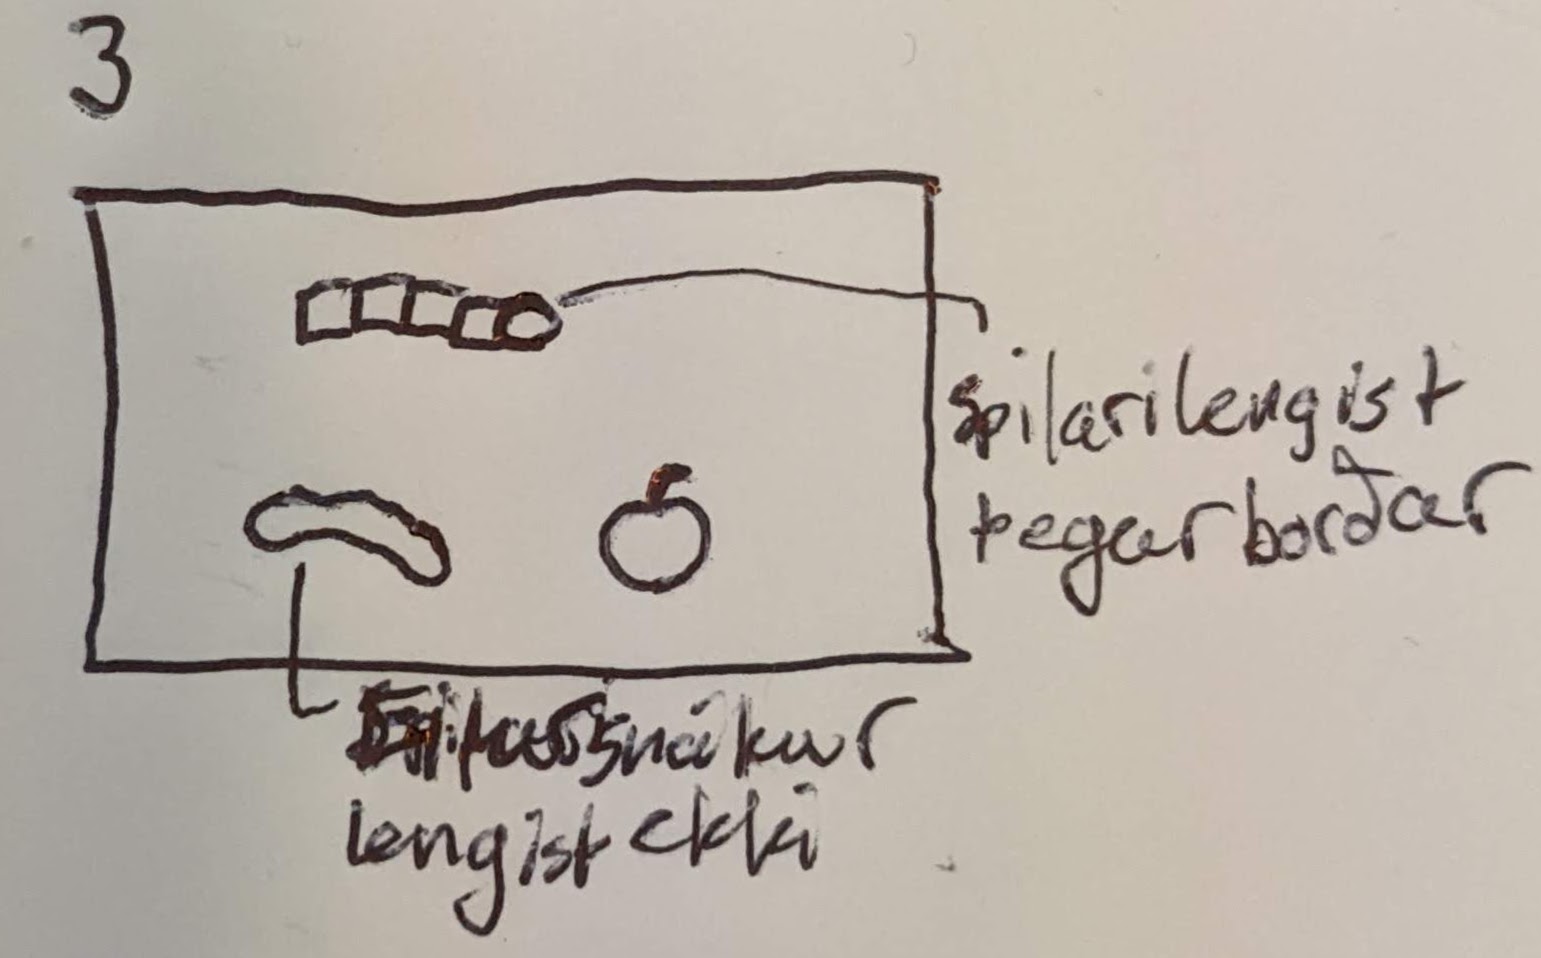 3
Spilari lengist
þegar borðar
snákur
lengist ekki